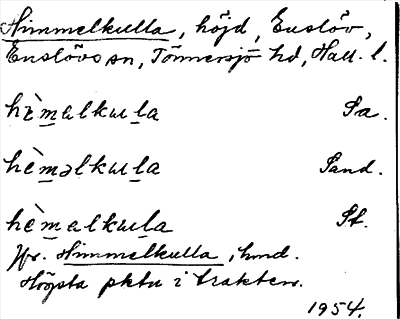 Himmelkulla, höjd, Enslöv,
Enslövs sn, Tönnersjö hd, Hall. l.
hèmalkula Sa.
hèməlkula Sand.
hèmalkula St.
Jfr. Himmelkulla, hmd.
Högsta pktn i trakten.
1954.